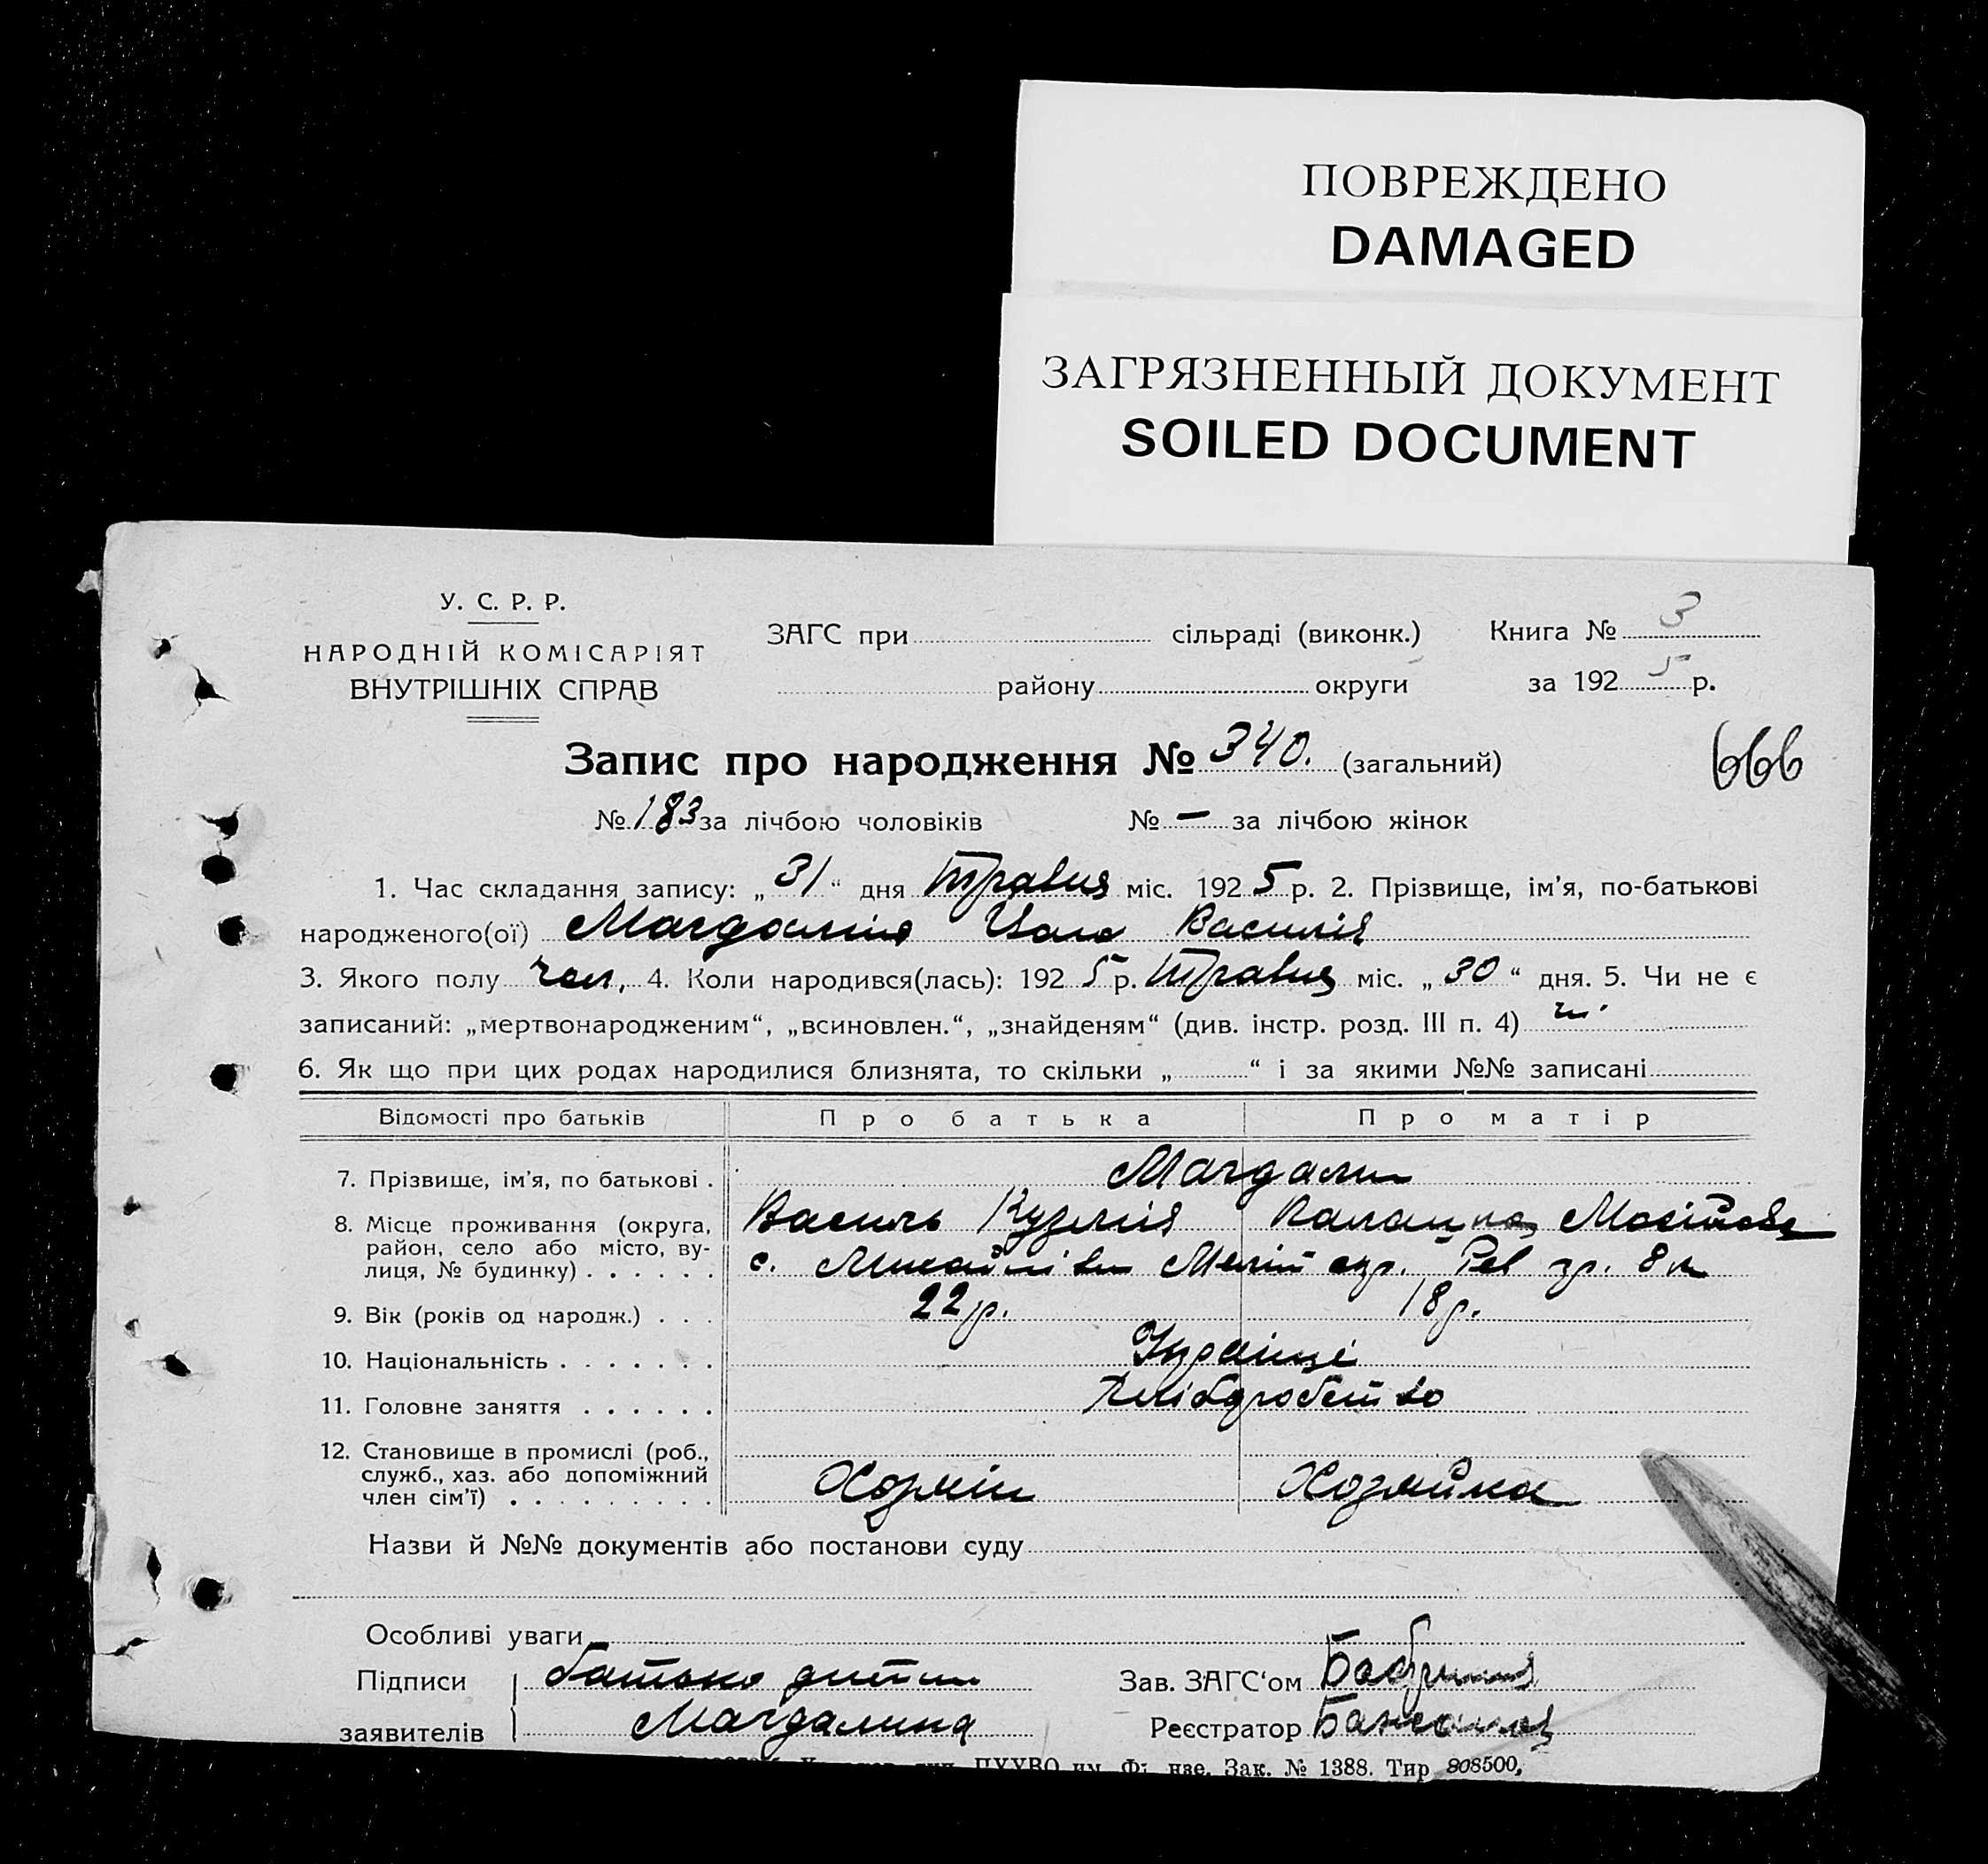 ПОВРЕЖДЕНО
DAMAGED
ЗАГРЯЗНЕННЫЙ ДОКУМЕНТ
SOILED DOCUMENT
У. С. Р. Р.
НАРОДНІЙ КОМІСАРІЯТ
ВНУТРІШНІХ СПРАВ
ЗАГС при сільраді (виконк.) Книга № 3
району округи за 192 5 р.
Запис про народження № 340. (загальний)
666
№ 183 за лічбою чоловіків № — за лічбою жінок
1. Час складання запису: „ 31 “ дня травня міс. 192 5 р. 2. Прізвище, ім'я, по-батькові
народженого(ої) Василія
3. Якого полу чол, 4. Коли народився(лась): 192 5 р. травня міс. „ 30 “ дня. 5. Чи не є
записаний: „мертвонародженим“, „всиновлен.“, „знайденям“ (див. інстр. розд. III п. 4) ні
6. Як що при цих родах народилися близнята, то скільки „ “ і за якими №№ записані
Відомості про батьків Про батька Про матір
7. Прізвище, ім'я, по батькові . Магдалин
8. Місце проживання (округа, район, село або місто, вулиця, № будинку) . . . . . . Василь Кузьмія
с. Михайлівки Меліт окр.
9. Вік (років од народж.) . . . 22 р. 18 р.
10. Національність . . . . . . . Українці
11. Головне заняття . . . . . . Хліборобство
12. Становище в промислі (роб., служб., хаз. або допоміжний член сім'ї) . . . . . . . . . Хозяін Хозяйка
Назви й №№ документів або постанови суду
Особливі уваги
Підписи батько дитини Зав. ЗАГС'ом
заявителів Магдалина Реєстратор
ПУУВО им. Фрунзе. Зак. № 1388. Тир 808500,